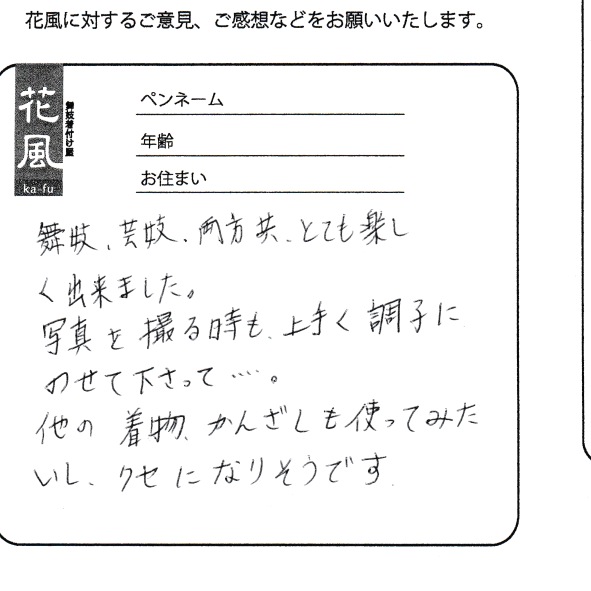 花風に対するご意見、ご感想などをお願いいたします。
花風
舞妓着付け屋
ka-fu
ペンネーム
年齢
お住まい
舞妓、芸妓、両方共、とても楽し
く出来ました。
写真を撮る時も、上手く調子に
のせて下さって……。
他の着物、かんざしも使ってみた
いし、クセになりそうです.